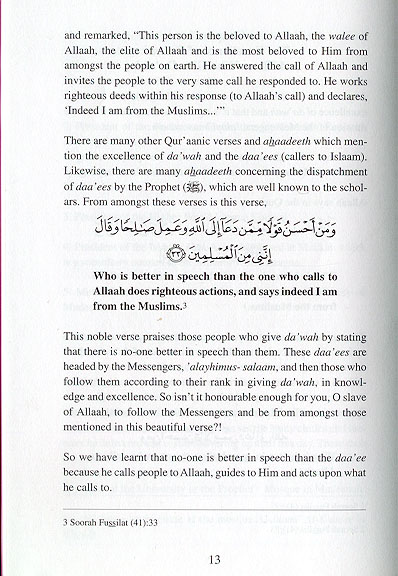 and remarked, “This person is the beloved to Allaah, the walee of
Allaah, the elite of Allaah and is the most beloved to Him from
amongst the people on earth. He answered the call of Allaah and
invites the people to the very same call he responded to. He works
righteous deeds within his response (to Allaah’s call) and declares,
‘Indeed I am from the Muslims...’”
There are many other Qur’aanic verses and ahaadeeth which men-
tion the excellence of da’wah and the daa’ees (callers to Islaam).
Likewise, there are many ahaadeeth concerning the dispatchment
of daa’ees by the Prophet (ﷺ), which are well known to the schol-
ars. From amongst these verses is this verse,
وَمَنْ أَحْسَنُ قَوْلًا مِّمَّن دَعَآ إِلَى ٱللَّهِ وَعَمِلَ صَـٰلِحًا وَقَالَ
إِنَّنِى مِنَ ٱلْمُسْلِمِينَ ﴿٣٣﴾
Who is better in speech than the one who calls to
Allaah does righteous actions, and says indeed I am
from the Muslims.3
This noble verse praises those people who give da’wah by stating
that there is no-one better in speech than them. These daa’ees are
headed by the Messengers, ’alayhimus- salaam, and then those who
follow them according to their rank in giving da’wah, in knowl-
edge and excellence. So isn’t it honourable enough for you, O slave
of Allaah, to follow the Messengers and be from amongst those
mentioned in this beautiful verse?!
So we have learnt that no-one is better in speech than the daa’ee
because he calls people to Allaah, guides to Him and acts upon what
he calls to.
3 Soorah Fussilat (41):33
13